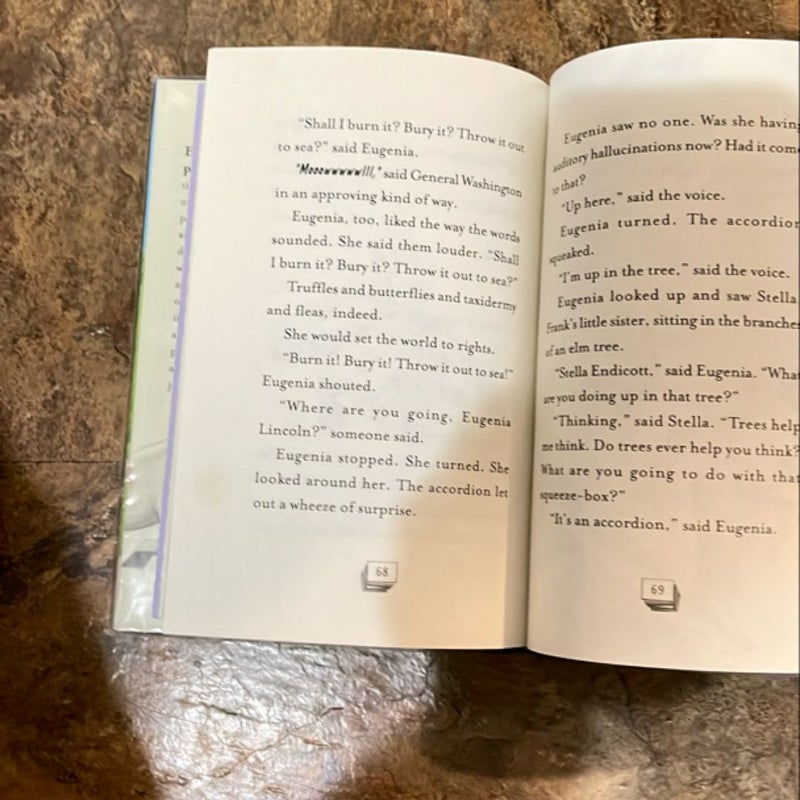 “Shall I burn it? Bury it? Throw it out
to sea?” said Eugenia.
“Mooowwwwlll,” said General Washington
in an approving kind of way.
Eugenia, too, liked the way the words
sounded. She said them louder. “Shall
I burn it? Bury it? Throw it out to sea?”
Truffles and butterflies and taxidermy
and fleas, indeed.
She would set the world to rights.
“Burn it! Bury it! Throw it out to sea!”
Eugenia shouted.
“Where are you going, Eugenia
Lincoln?” someone said.
Eugenia stopped. She turned. She
looked around her. The accordion let
out a wheeze of surprise.
68
Eugenia saw no one. Was she having
auditory hallucinations now? Had it come
to that?
“Up here,” said the voice.
Eugenia turned. The accordion
squeaked.
“I’m up in the tree,” said the voice.
Eugenia looked up and saw Stella,
Frank’s little sister, sitting in the branches
of an elm tree.
“Stella Endicott,” said Eugenia. “What
are you doing up in that tree?”
“Thinking,” said Stella. “Trees help
me think. Do trees ever help you think?
What are you going to do with that
squeeze-box?”
“It’s an accordion,” said Eugenia.
69